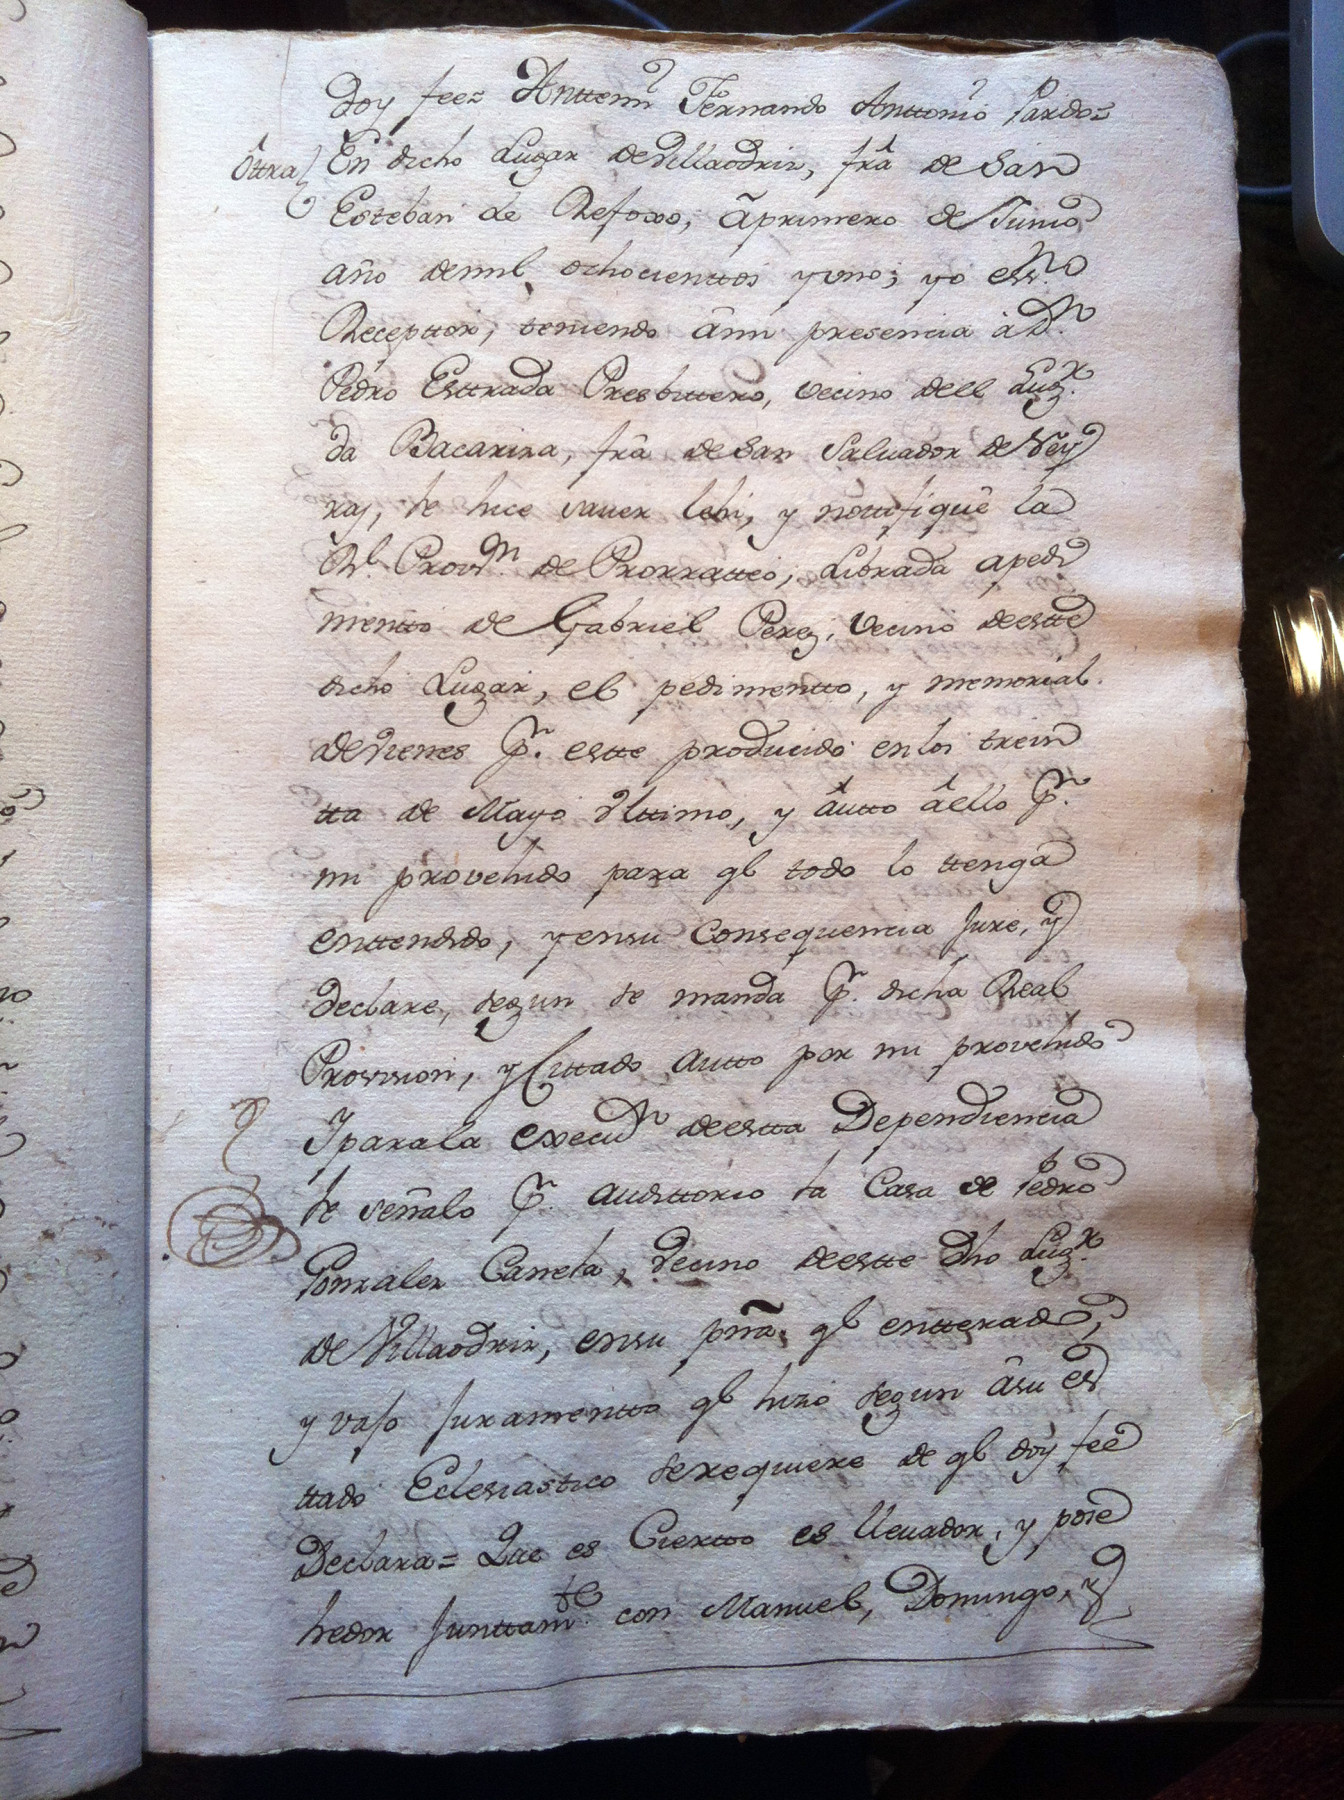 doy fee= Anttemi Fernando Anttonio Pardo=
Ôttra En dicho Lugar de Villaodriz, frâ de San
Esteban de Refoxo, â primero de Junio
año demil ochocienttos y uno; yo essno
Recepttor, teniendo âmi presencia â Dn.
Pedro Esttrada Presbittero, vecino dell Lugr.
da Bacariza, frâ de San Salvador de Ney
ra, le hice saver lehi, y nottifiquê la
Rl. Provsn. de Prorratteo, Librada apedi
mentto de Gabriel Perez, Vecino deestte
dicho Lugar, el pedimentto, y memorial
de vienes pr. estte producido enlos trein
tta de Mayo ûlttimo, y âutto âello pr.
mi provehido para qe todo lo ttenga
enttendido, y ensu Consequencia Jure, y
Declare, segun se manda pr. dicha Real
Provision, y Cittado autto por mi provehido
Y parala execuon deestta Dependiencia
le señalo pr. audittorio la Casa de Pedro
Gonzalez Caneta, vecino deestte dho Lugr.
de Villaodriz, ensu pñâ. qe entterado,
y vajo Juramentto qe hizo segun âsu es
ttado Eclesiastico serequiere de qe doy fee
Declara= Que es Ciertto es llevador, y pose
hedor Junttamte. con Manuel, Domingo, y